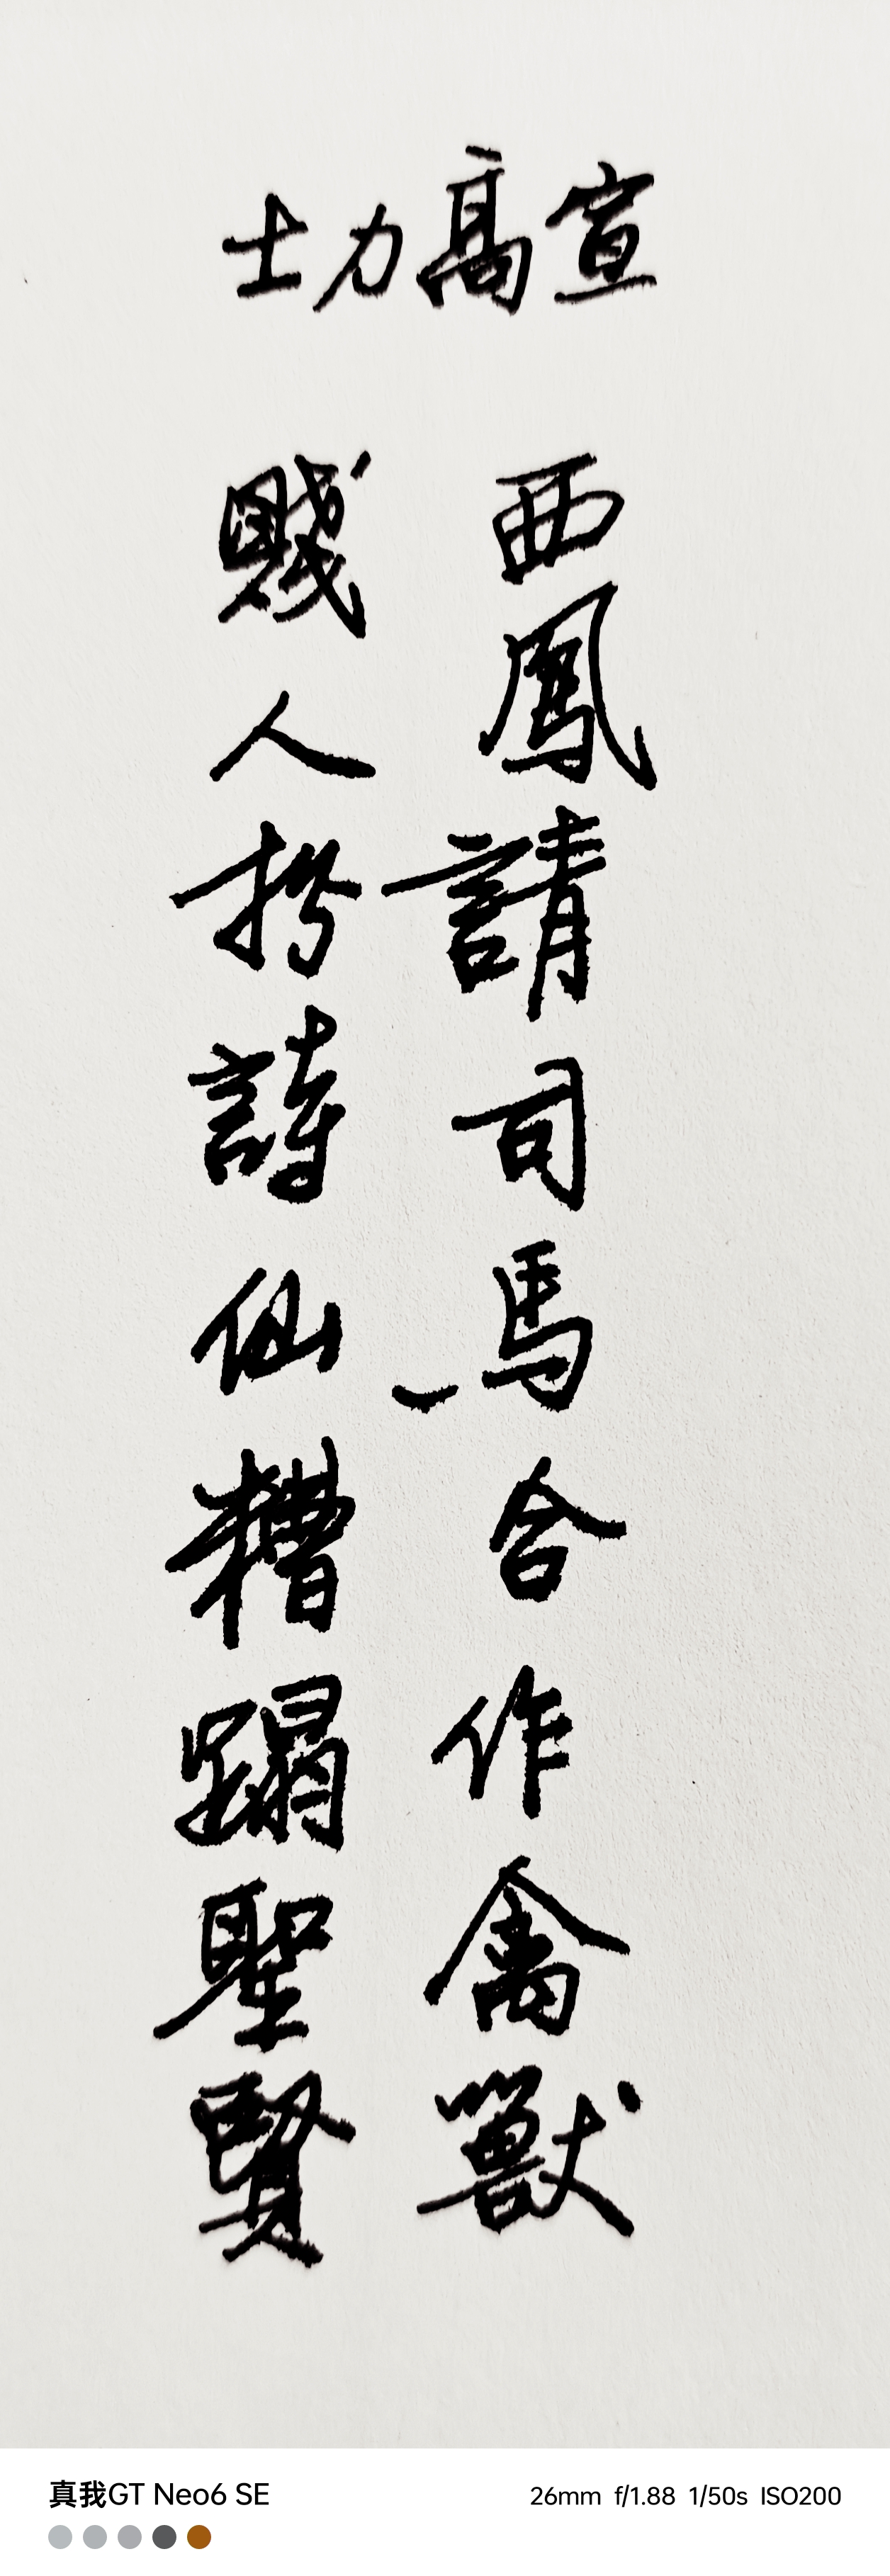 宣高力士
西鳳請司馬合作禽獸
賤人扮詩仙糟蹋聖賢
真我GT Neo6 SE
26mm f/1.88 1/50s ISO200